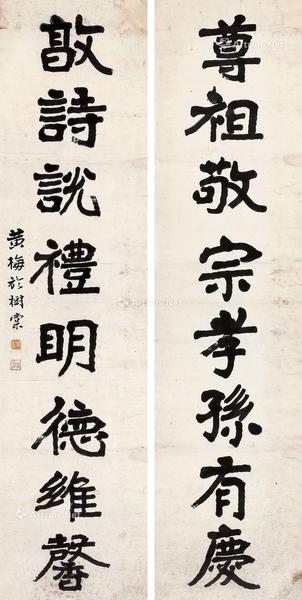 尊祖敬宗孝孫有慶
敦詩說禮明德維馨
黃梅於樹棠